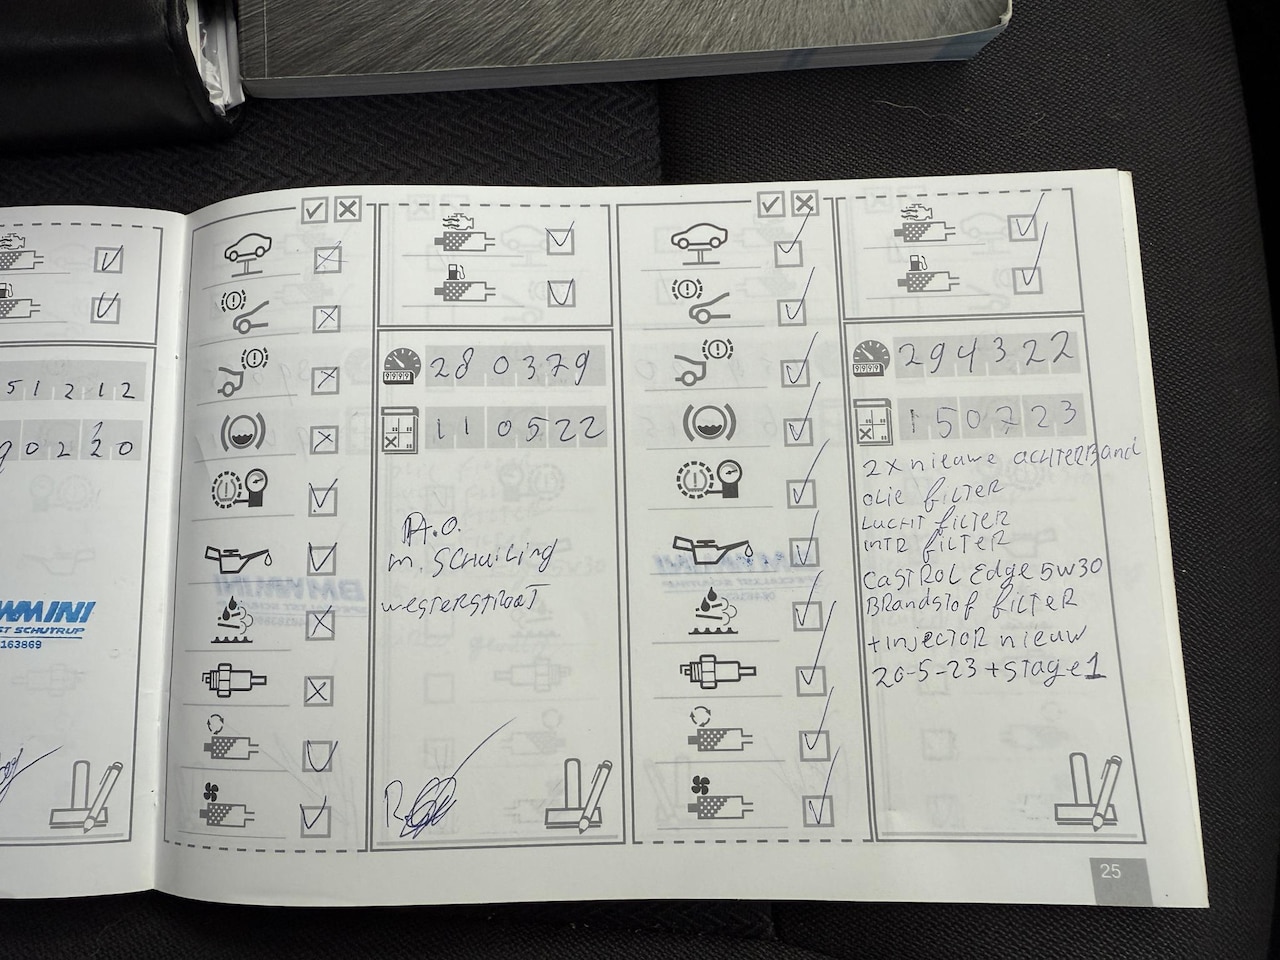 51212
90220
WMINI
ST SCHUTRUP
163869
280379
110522
A.O.
M. SCHUiLing
WESTERSTRAAT
294322
150723
2x nieuwe ACHTERBand
OLIE filTER
LUCHT filTER
inTR filTER
CASTROL Edge 5w30
BRandstof filTER
+injECTOR niEUW
20-5-23 + STage 1
25